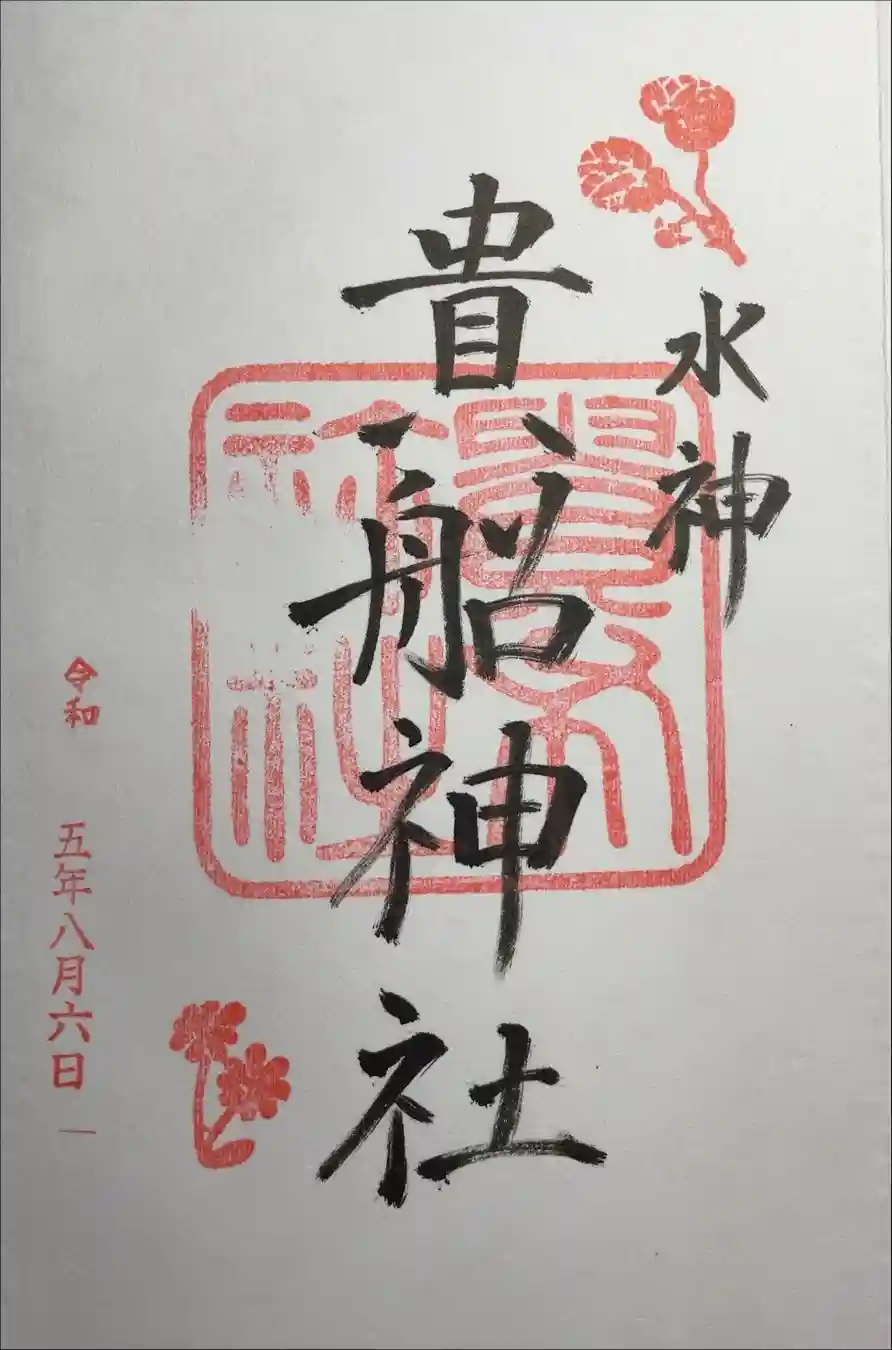 水神
貴船神社
令和 五年八月六日